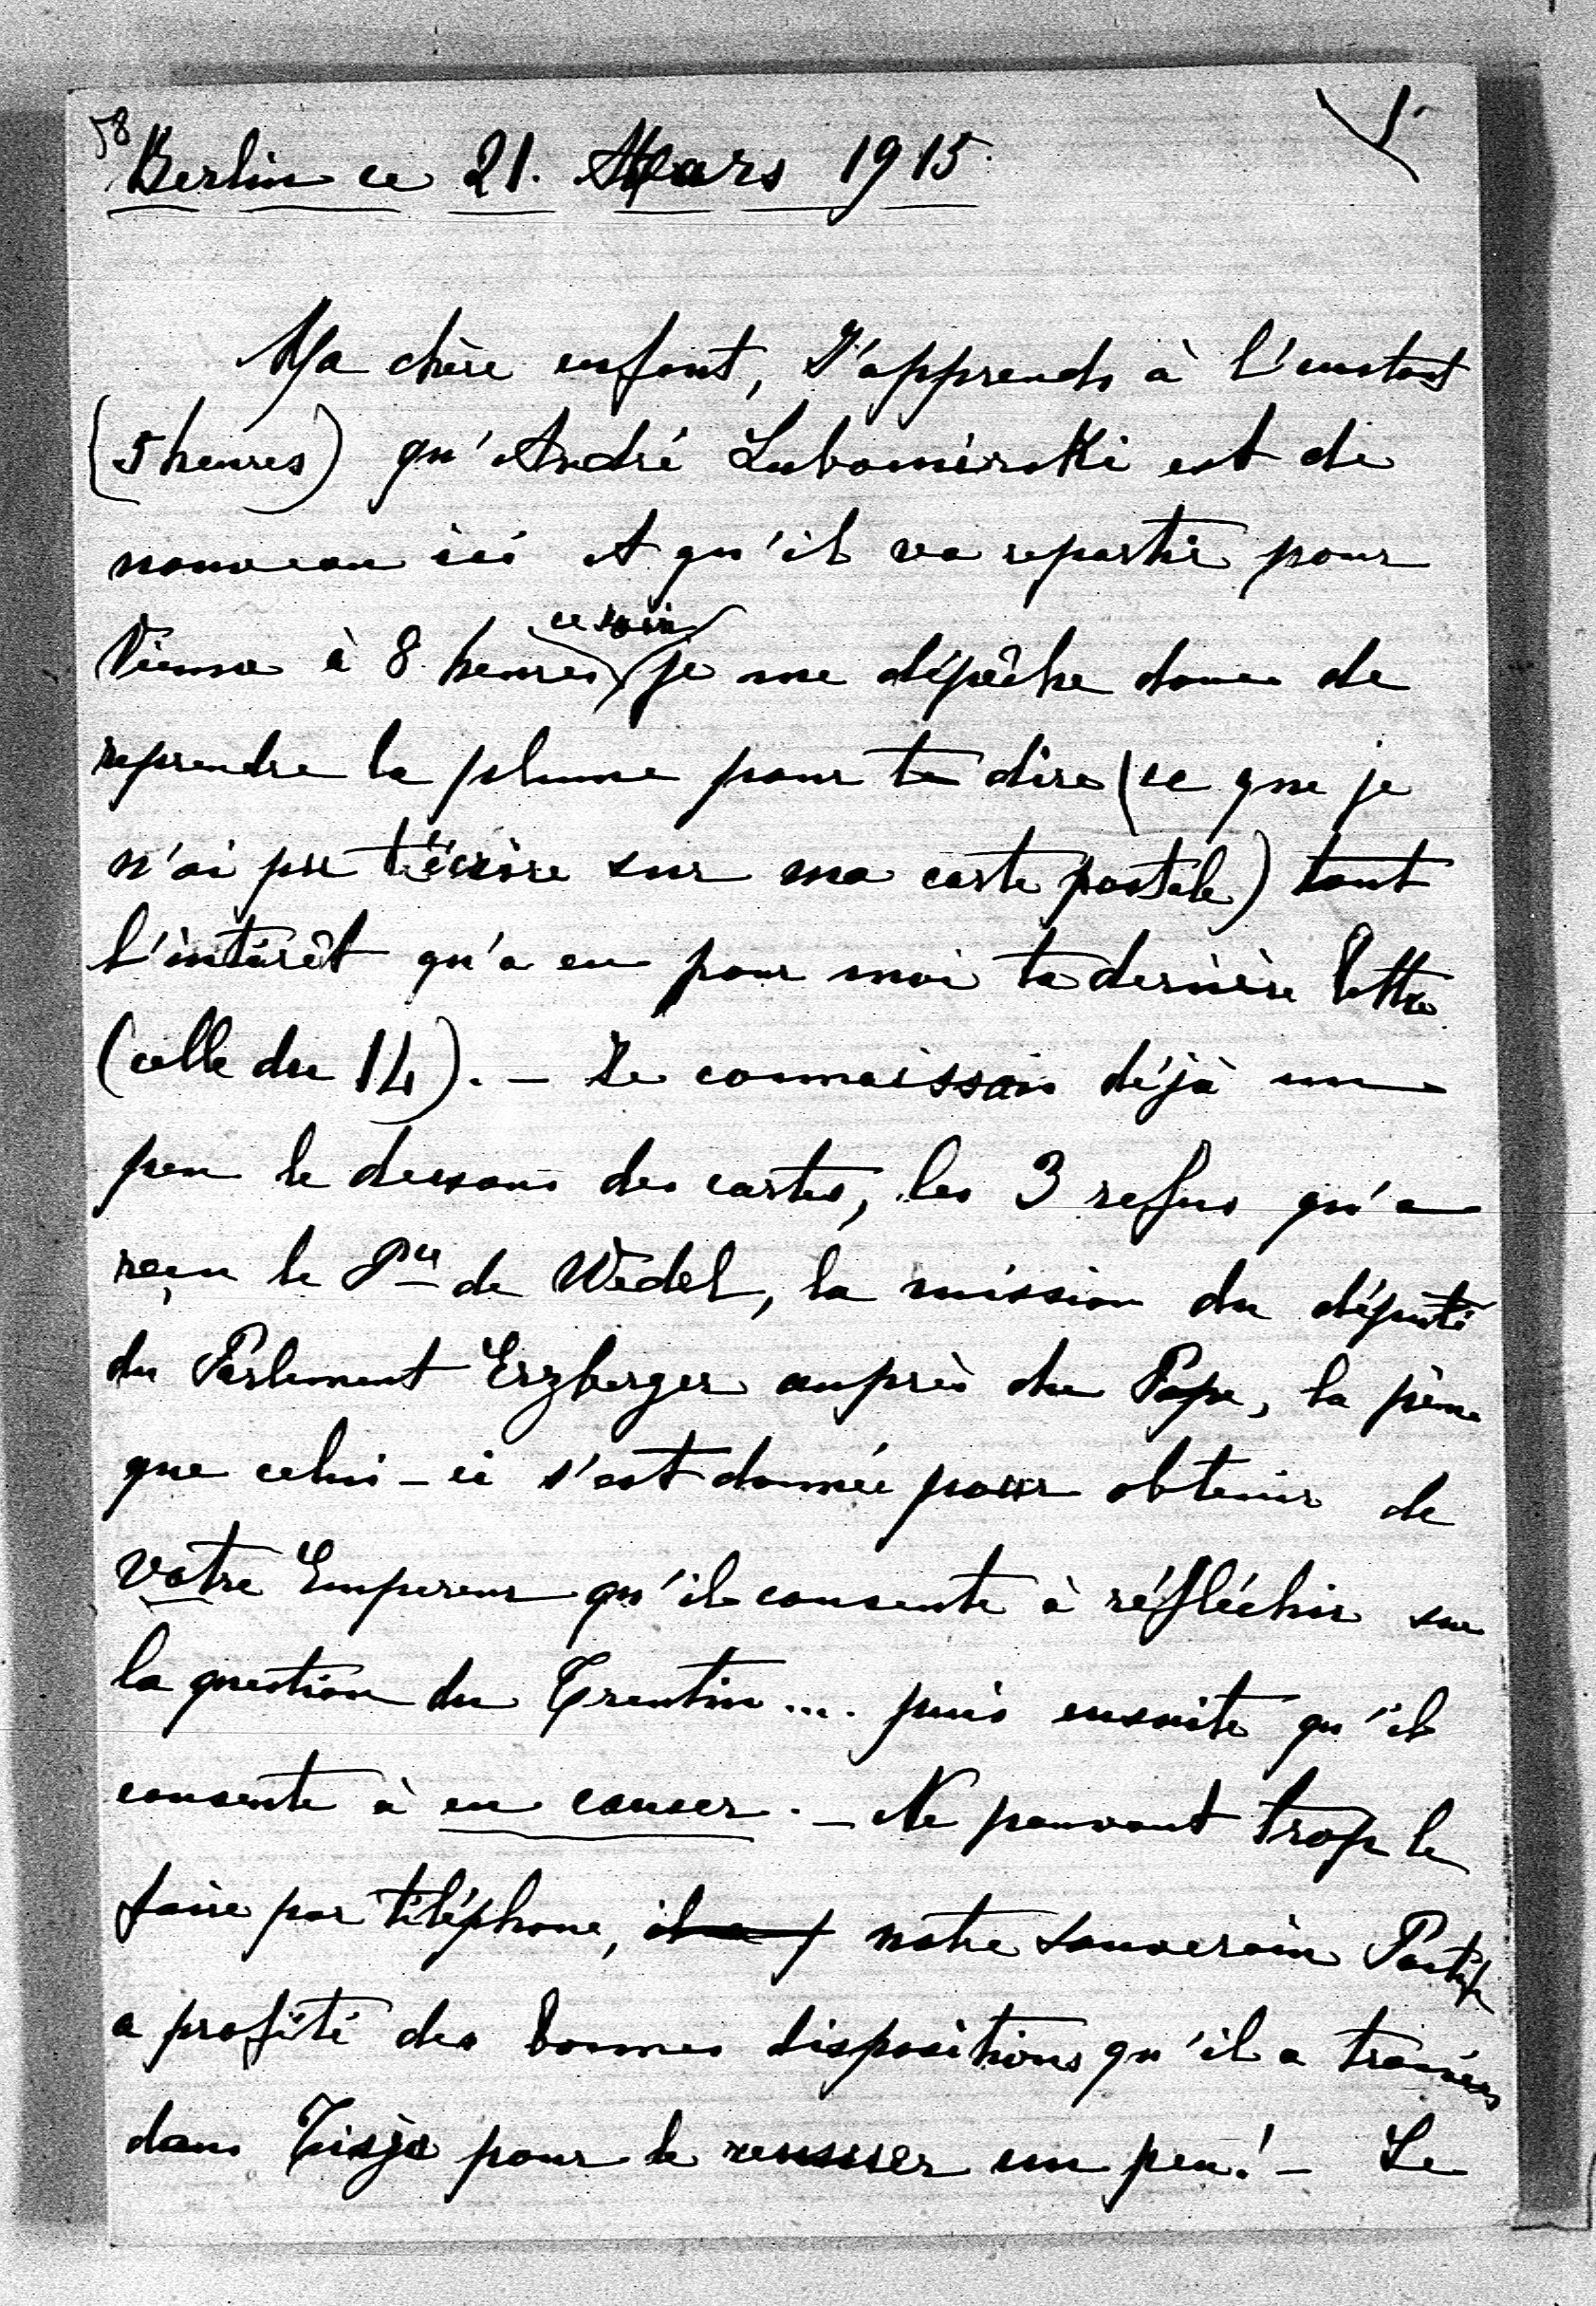 58
1.
Berlin ce 21. Mars 1915.
Ma chère enfant, J'apprends à l'instant
(5 heures) qu'André Lubomirski est de
nouveau ici et qu'il va repartir pour
ce soir
Vienne à 8 heures je me dépêche donc de
reprendre la plume pour te dire (ce que je
n'ai pu t'écrire sur ma carte postale) tout
l'intérêt qu'a eu pour moi ta dernière lettre
(celle du 14). – Je connaissais déjà un
peu le dessous des cartes, les 3 refus qu'a
reçu le Pce de Wedel, la mission du député
du Parlement Erzberger auprès du Pape, la peine
que celui-ci s'est donnée pour obtenir de
votre Empereur qu'il consente à réfléchir sur
la question du Trentin .... puis ensuite qu'il
consente à en causer. – Ne pouvant trop le
faire par téléphone, notre souverain Pontife
a profité des bonnes dispositions qu'il a trouvées
dans Tisza pour le un peu! – Le